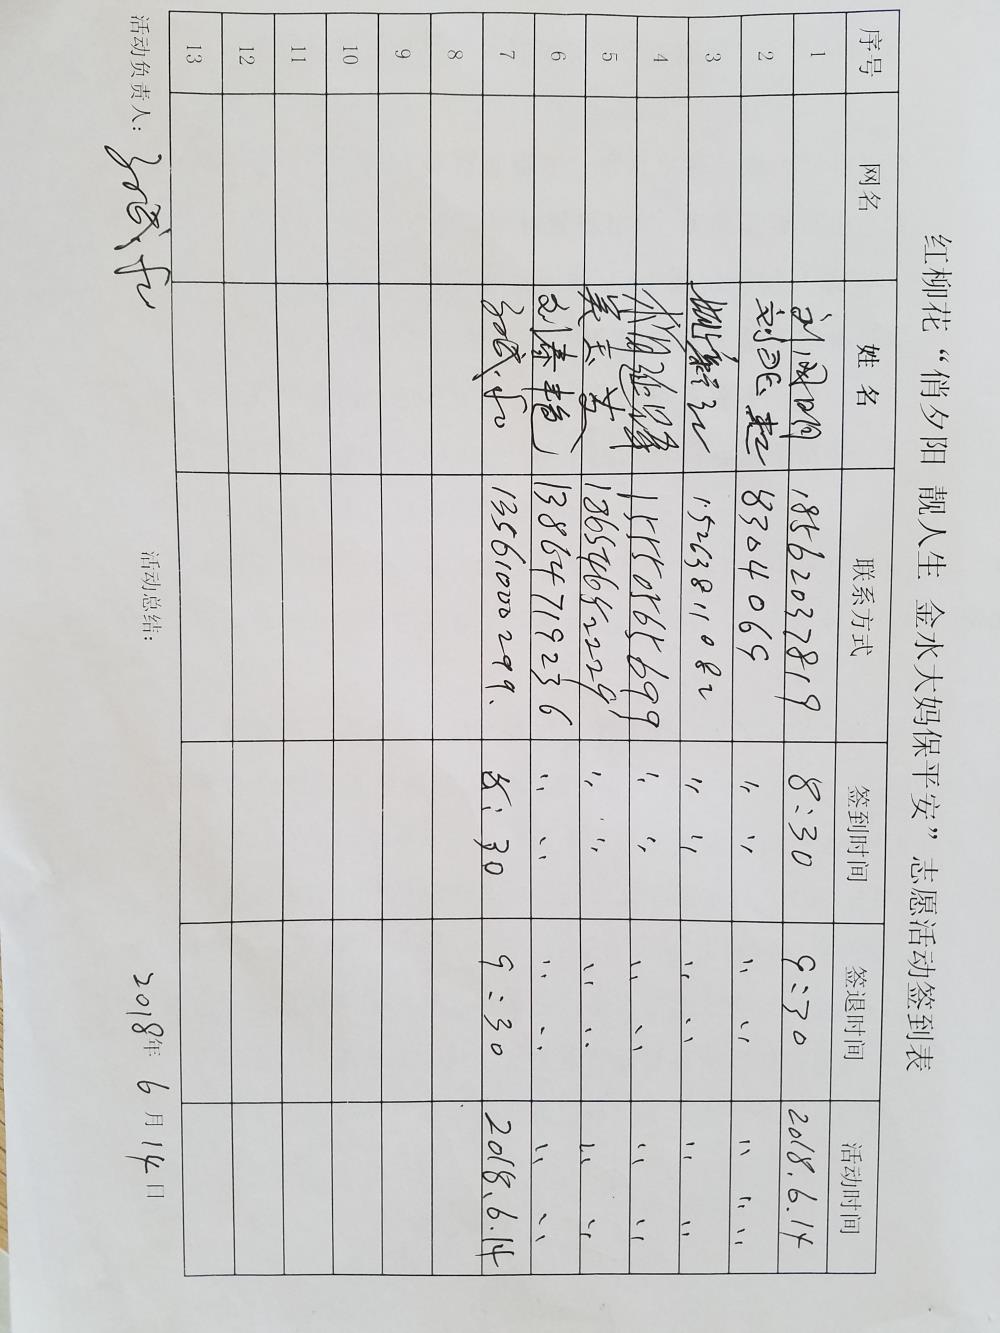 红柳花“俏夕阳 靓人生 金水大妈保平安”志愿活动签到表
序号 网名 姓名 联系方式 签到时间 签退时间 活动时间
1 18562037819 8:30 9:30 2018.6.14
2 8304069 〃 〃 〃 〃 〃 〃
3 15263811082 〃 〃 〃 〃 〃 〃
4 15550565699 〃 〃 〃 〃 〃 〃
5 18654652229 〃 〃 〃 〃 〃 〃
6 刘春艳 13864719236 〃 〃 〃 〃 〃 〃
7 13561000299. 8:30 9:30 2018.6.14
8
9
10
11
12
13
活动负责人: 活动总结: 2018年 6月14日